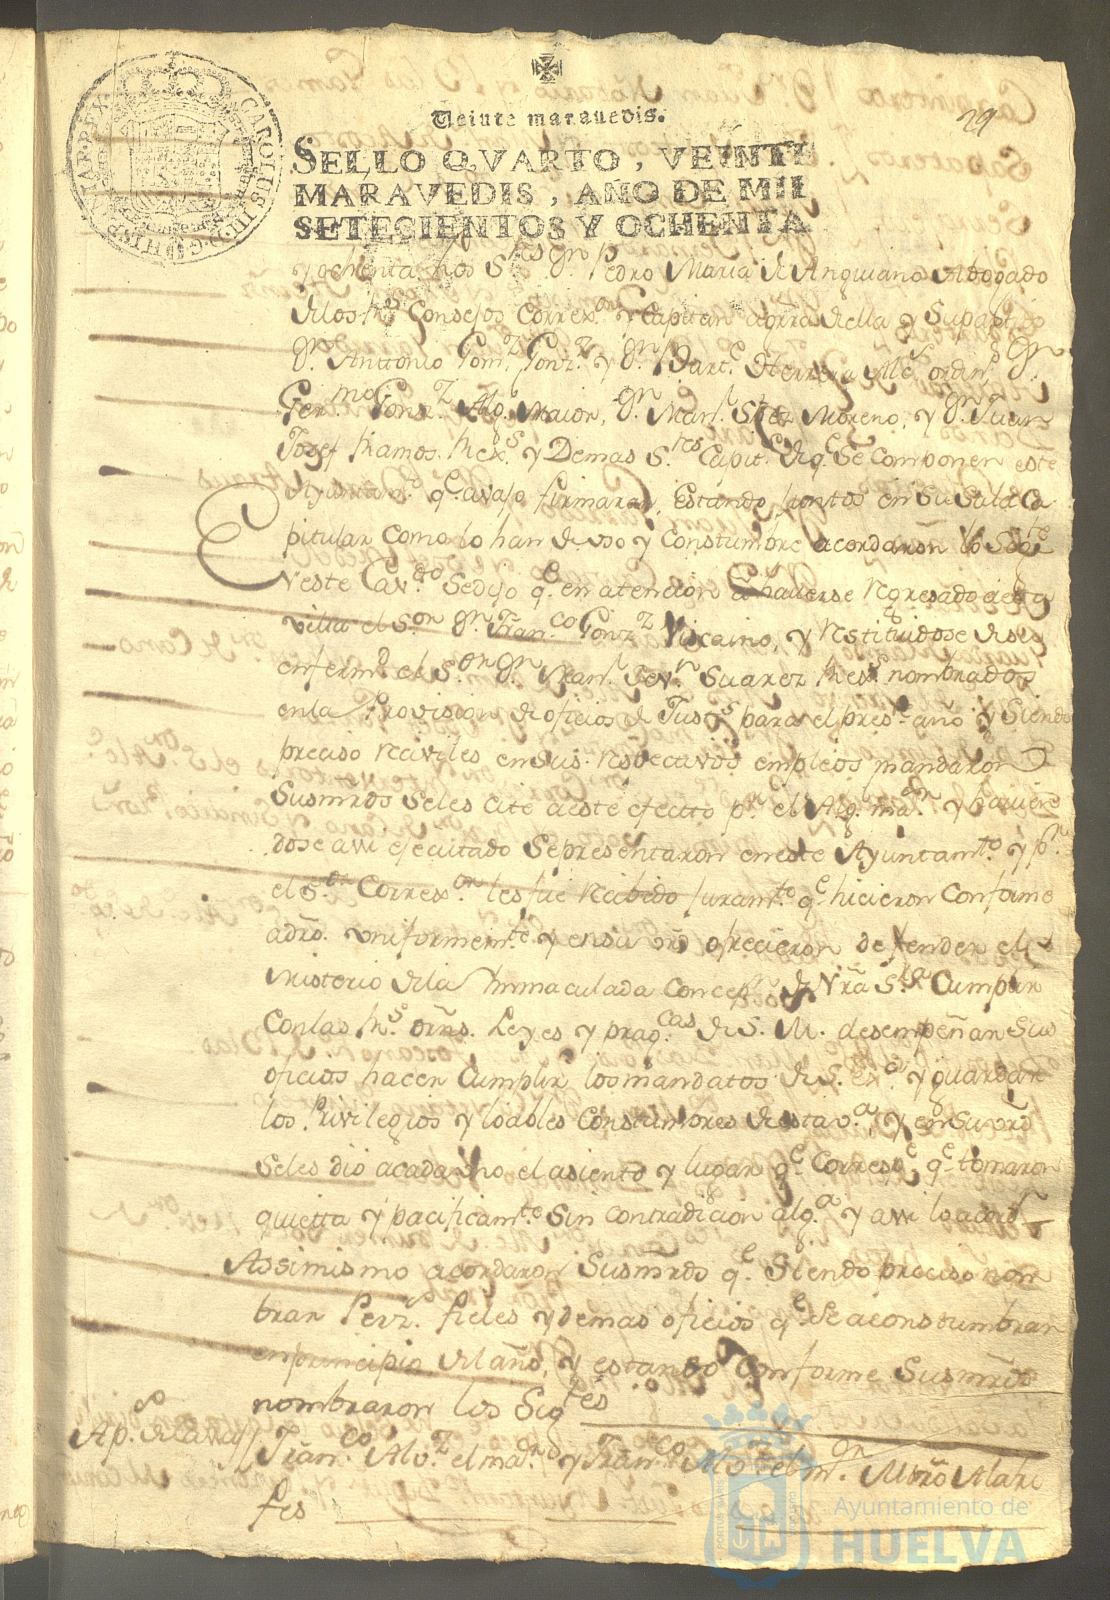 29
CAROLUS III D G HISPANIAR REX
Veinte maravedis.
SELLO QVARTO, VEINTE
MARAVEDIS, AÑO DE MIL
SETECIENTOS Y OCHENTA
y ochenta los S.res Dn. Pedro Maria de Anguiano Abogado
de los R.s Consejos Correx.or y Capitan a grra de ella y Su partido
Dn. Antonio Gom.z Gonz.z y Dn. Bart.e de Herrera Alc.s ordin.s Dn.
Ger.mo Gonz.z Alg.l Maior, Dn. Man.l Moreno, y Dn. Juan
Josef Ramos Rex.s y Demas S.res Capit.s de q.e Se componen este
Ayuntam.to q.e avajo firmaran, Estando Juntos en Su Sala Ca
pitular como lo han de uso y Constumbre acordaron lo Sig.te
En este Cav.do Se dijo q.e en atencion a haverse regresado a esta
villa el S.or Dn. Fran.co Gonz.z Viscaino, y restituidose de su
enferm.d el S.or Dn. Man.l Suarez Rex.s nombrados
en la Provision de oficios de Just.a para el pres.te año y Siendo
preciso recivirles en sus respectivos empleos mandaron
Sus mrds Se les cite a este efecto p.r el Alg.l ma.or y havien
dose assi ejecutado Se presentaron en este Ayuntam.to y p.r
el S.or Correx.or les fue recibido Juram.to q.e hicieron conforme
a dro. uniformem.te y en su vrd ofrecieron defender el
Misterio de la Immaculada Concep.n de Nra S.ra Cumplir
Con las R.s orns. Leyes y prag.cas de S. M. desempeñar Sus
oficios hacer Cumplir los mandatos de S. ex.a y guardar
los Privilegios y loables Constumbres de esta v.a, y en Su vrd
Se les dio a cada uno el asiento y lugar q.e Corresp.e q.e tomaron
quietta y pacificam.te Sin contradicion alg.a y assi lo acord.n
Assimismo acordaron Sus mrds q.e Siendo preciso nom
brar fieles y demas oficios q.e Se aconstumbran
en principio del año, y estando Conforme Sus mrds
nombraron los Sig.tes
Fran.co Alv.z el ma.or y Fran.co Alv.z el m.or Mtro Alari
fes
Ayuntamiento de
HUELVA